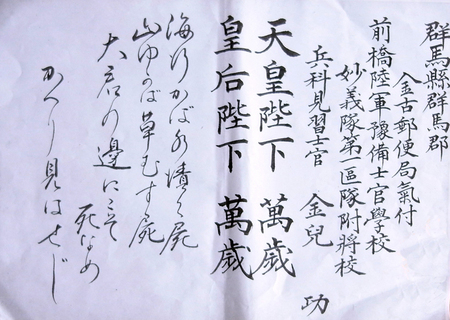 群馬縣群馬郡
金古郵便局氣付
前橋陸軍豫備士官學校
妙義隊第一區隊附將校
兵科見習士官 金兒 功
天皇陛下 萬歲
皇后陛下 萬歲
海行かば水漬く屍
山ゆかば草むす屍
大君の邊にこそ死なめ
かへり見はせじ